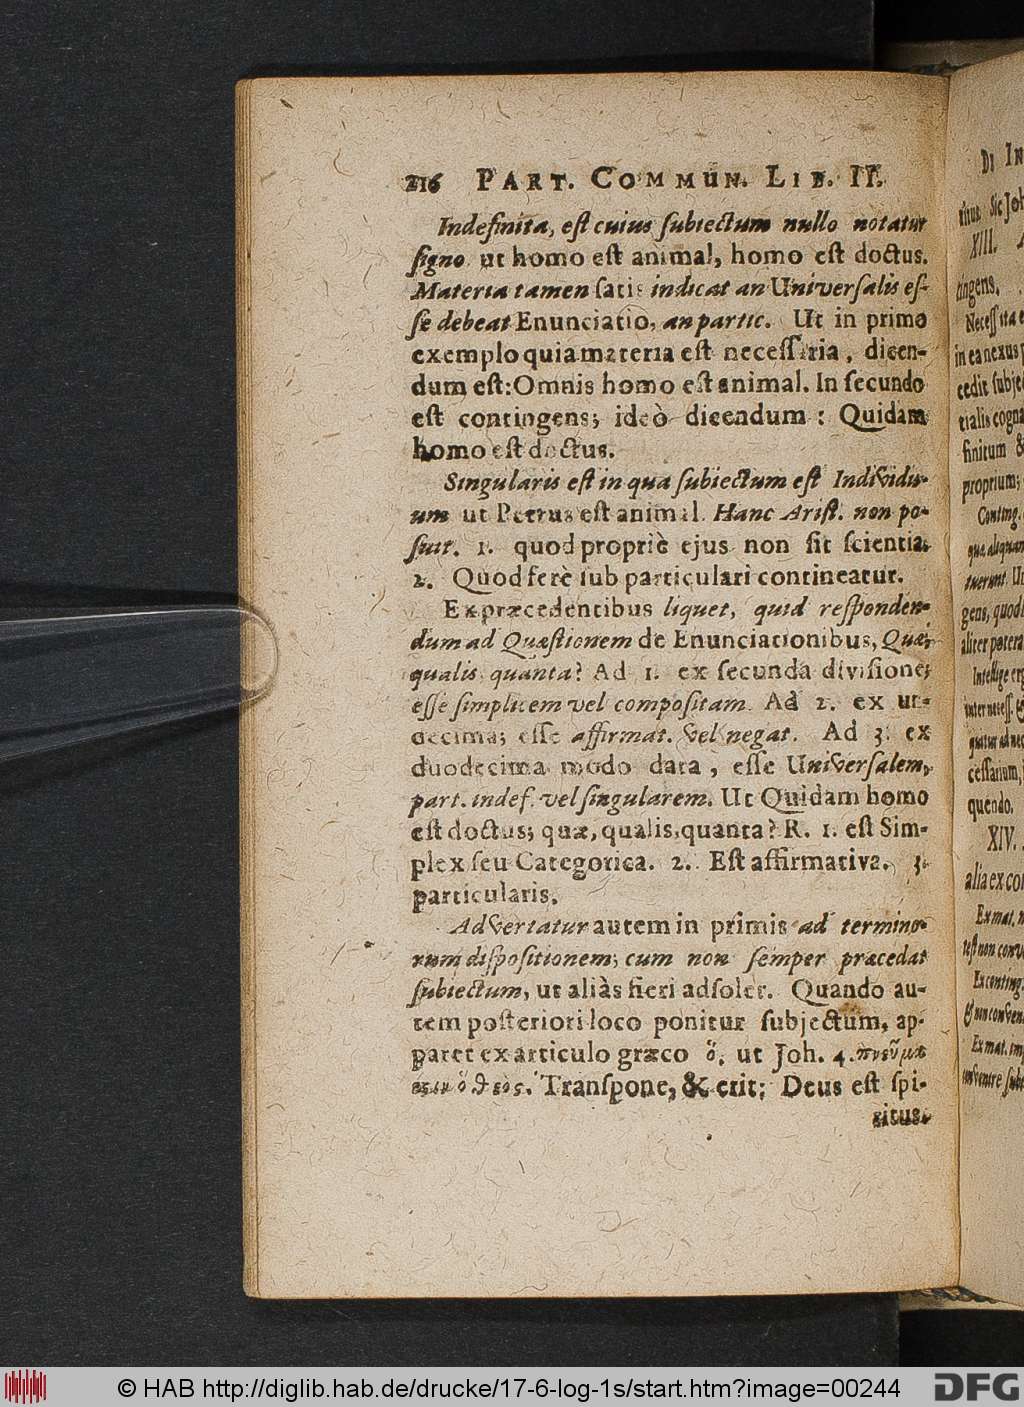 216 PART. COMMUN. LIB. II.
Indefinita, est cuius subiectum nullo notatur
signo ut homo est animal, homo est doctus.
Materia tamen satis indicat an Universalis es-
se debeat Enunciatio, an partic. Ut in primo
exemplo quia materia est necessaria, dicen-
dum est: Omnis homo est animal. In secundo
est contingens; ideò dicendum: Quidam
homo est doctus.
Singularis est in qua subiectum est Individu-
um ut Petrus est animal. Hanc Arist. non po-
suit. 1. quod propriè ejus non sit scientia.
2. Quod ferè sub particulari contineatur.
Ex præcedentibus liquet, quid responden-
dum ad Quæstionem de Enunciationibus, Quæ,
qualis, quanta? Ad 1. ex secunda divisione;
esse simplicem vel compositam. Ad 2. ex un-
decima; esse affirmat. vel negat. Ad 3. ex
duodecima modo data, esse Universalem,
part. indef. vel singularem. Ut Quidam homo
est doctus; quæ, qualis, quanta? R. 1. est Sim-
plex seu Categorica. 2. Est affirmativa. 3.
particularis.
Advertatur autem in primis ad termino-
rum dispositionem; cum non semper præcedat
subiectum, ut aliàs fieri adsolet. Quando au-
tem posteriori loco ponitur subjectum, ap-
paret ex articulo græco ὁ. ut Joh. 4. πνεῦμα
ὁ θεός. Transpone, & erit; Deus est spi-
ritus.
DE IN
ritus. Sic Joh
XIII.
tingens.
Necess
in ea nexus
cedit subje
tialis cogna
finitum &
proprium;
Conting.
quæ aliquan
tuerunt. Ut
gens, quod
aliter potera
Intellige
inter necess.
cessarium,
quendo.
XIV.
alia ex con
Ex mat. n
test non conv
Ex conting.
& non conven
Ex mat.
© HAB http://diglib.hab.de/drucke/17-6-log-1s/start.htm?image=00244
DFG